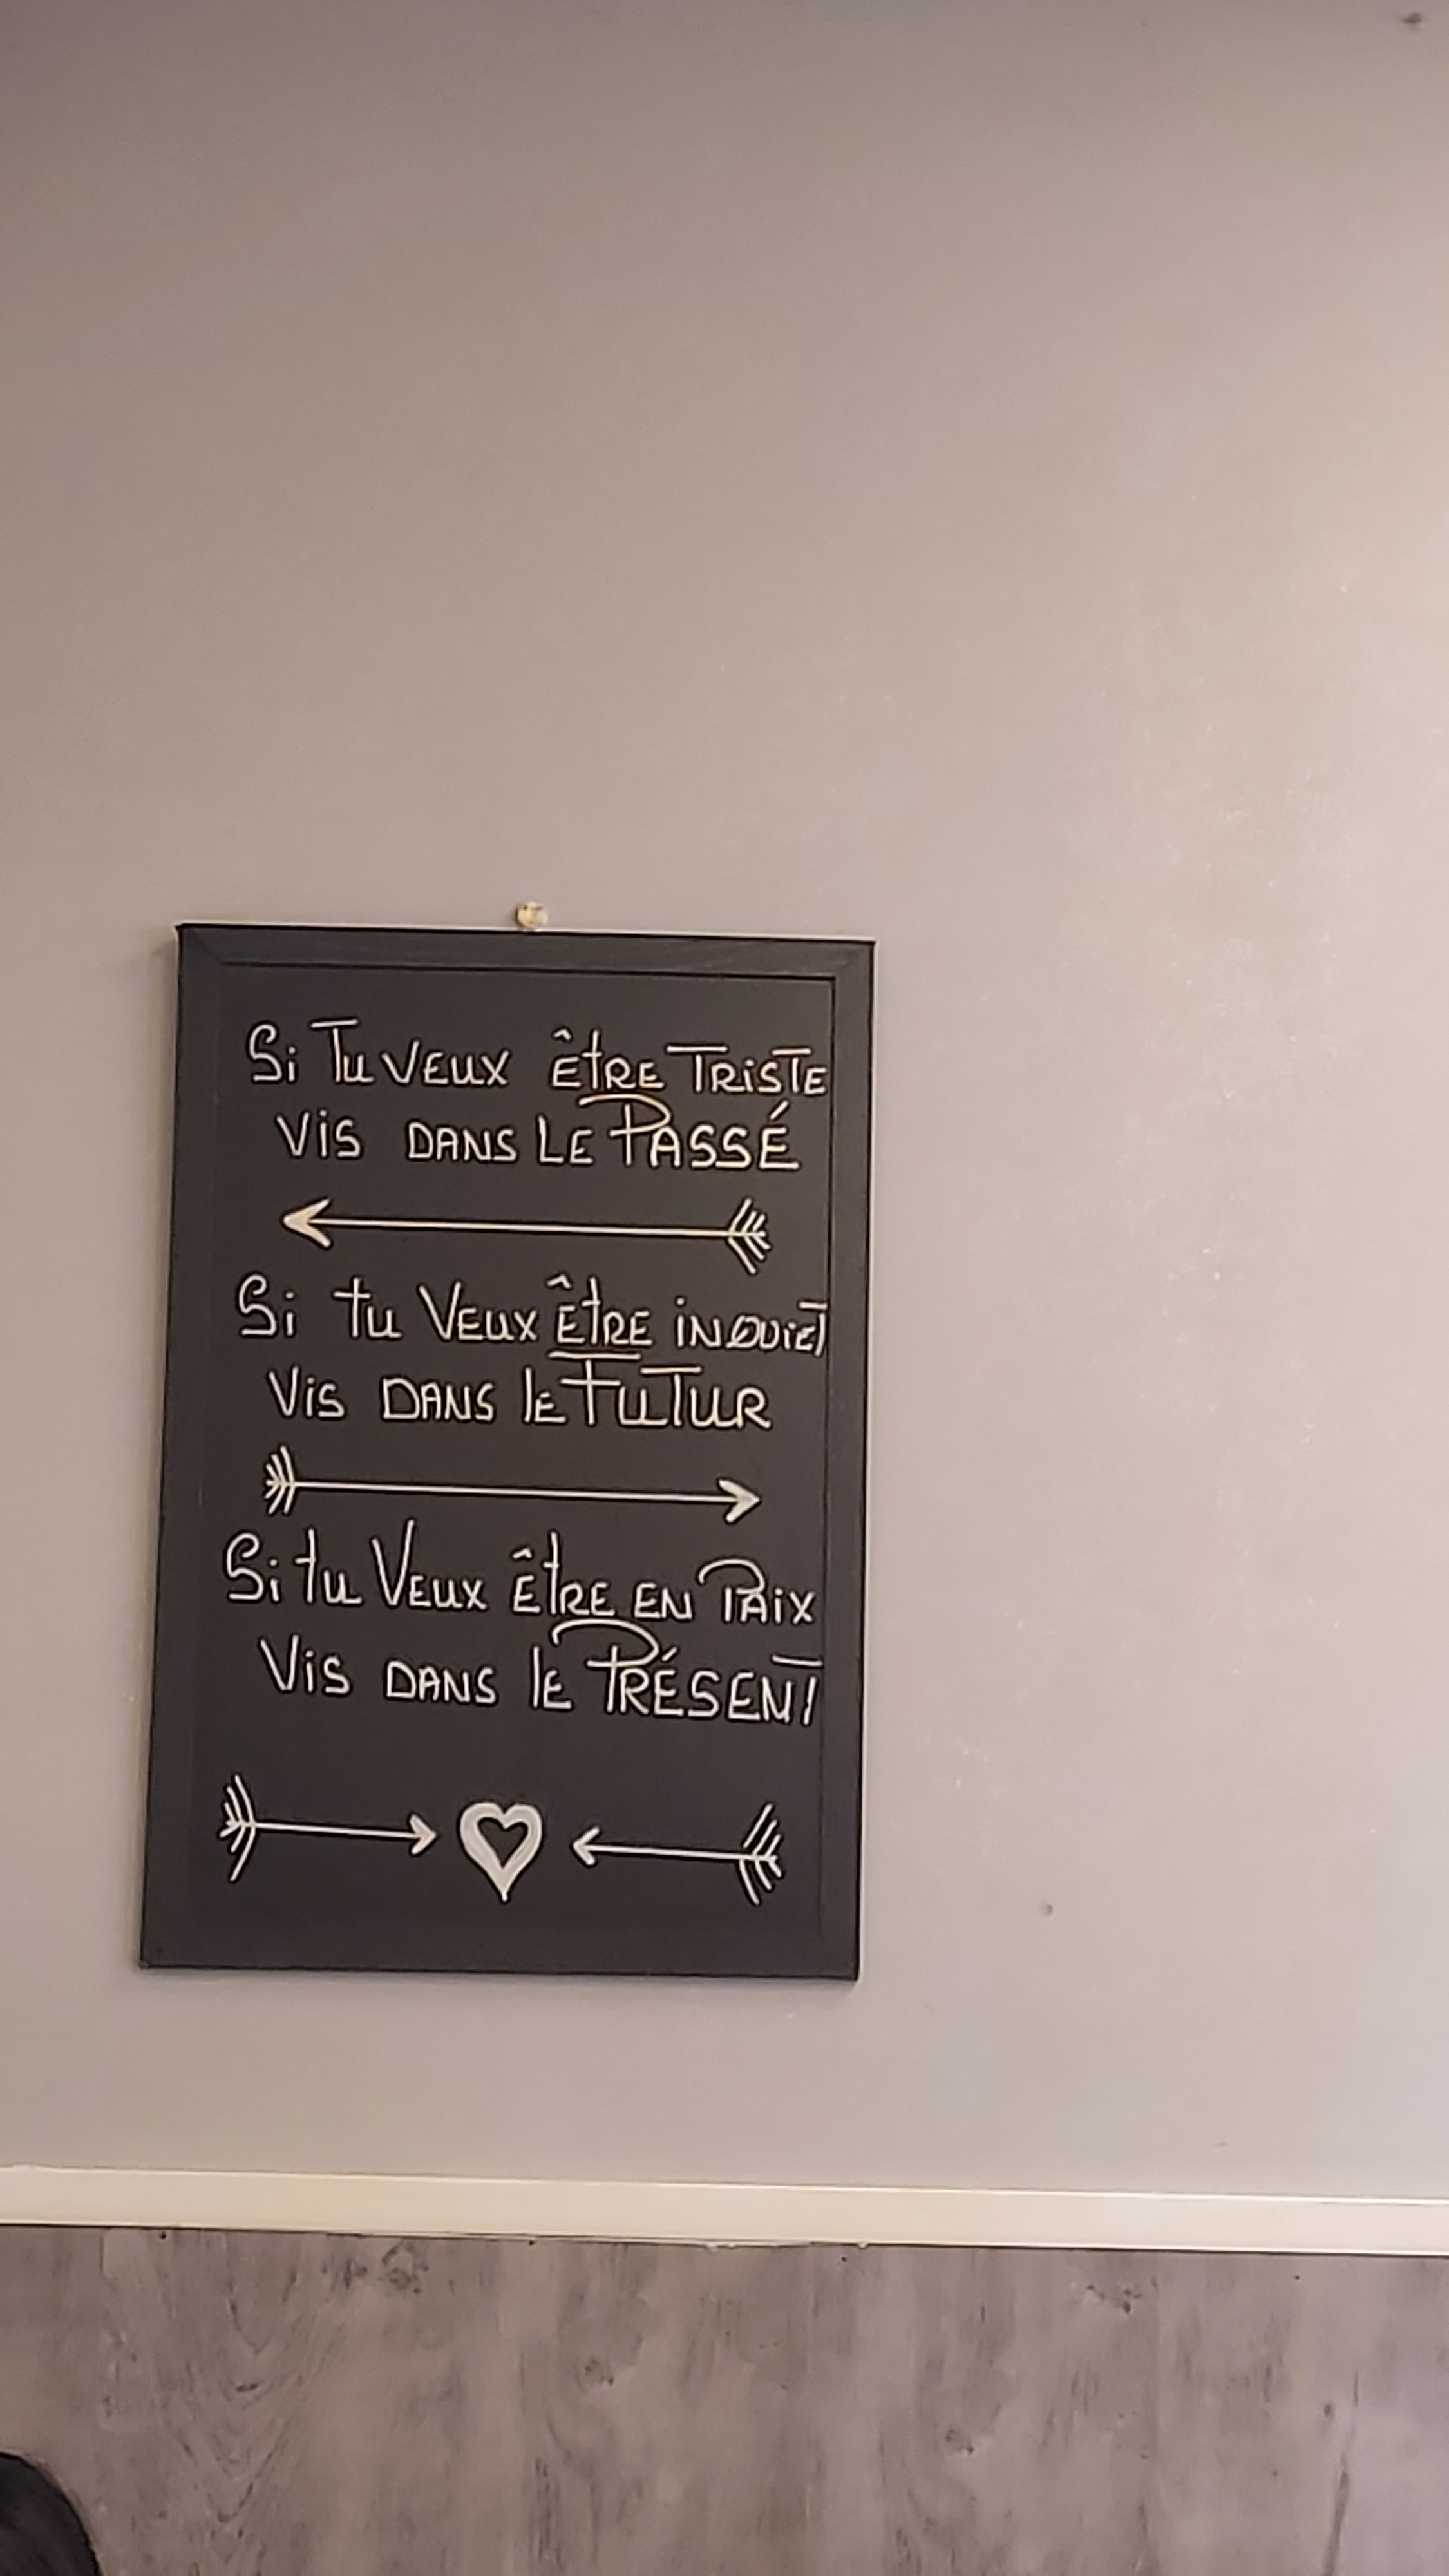 Si Tu VEUX ÊtRE TRiSTE
ViS DANS LE PASSÉ
Si tu VEUX ÊtRE iNQUiET
ViS DANS lE FUTUR
Si tu VEUX ÊtRE EN PAiX
ViS DANS lE PRÉSENT